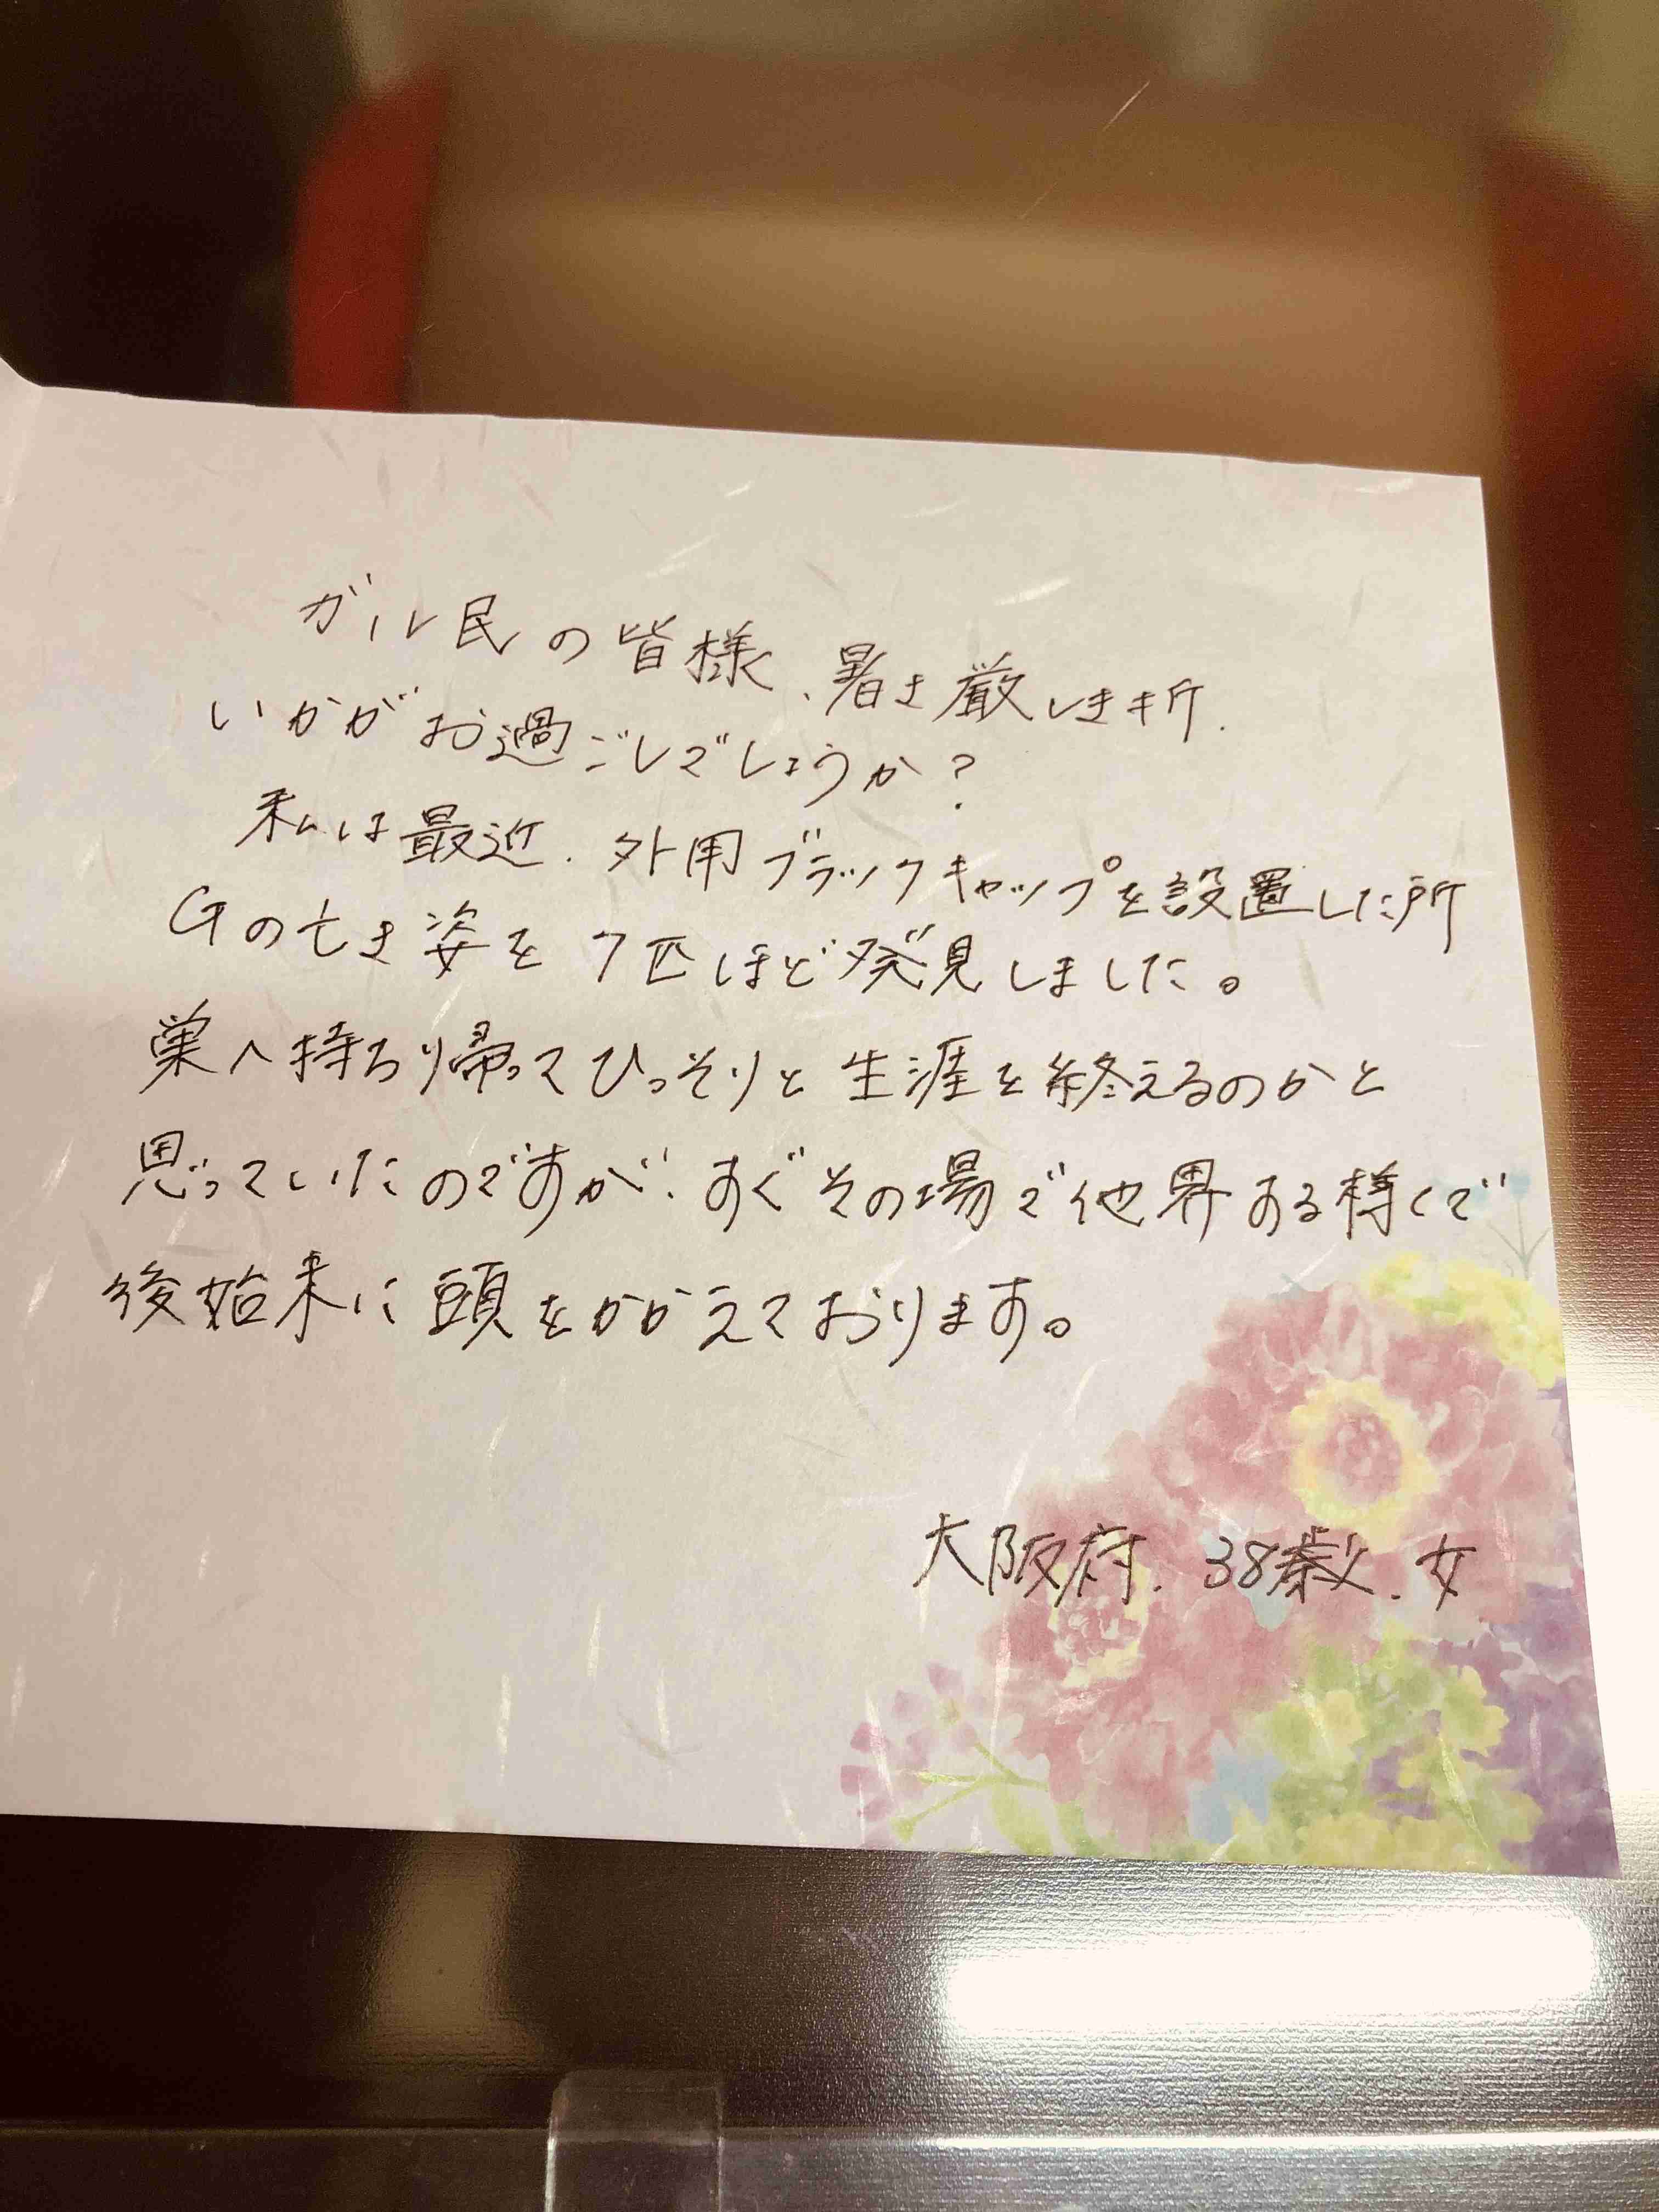 ガル民の皆様、暑さ厳しき折、
いかがお過ごしでしょうか?
私は最近、外用ブラックキャップを設置した所
Gの亡き姿を7匹ほど発見しました。
巣へ持ち帰ってひっそりと生涯を終えるのかと
思っていたのですが、すぐその場で他界する様で
後始末に頭をかかえております。
大阪府、38歳、女